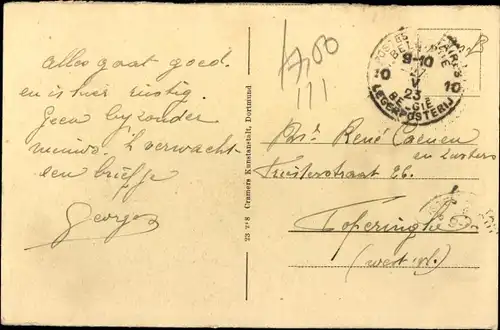 Alles gaat goed.
en is hier rustig.
Geen byzonder
nieuws. 'k verwacht
een briefje
Georges
23 278 Cramers Kunstanstalt, Dortmund
1,00
111
POSTES MILITAIRES
BELGIQUE
9-10
V
23
10
BELGIË
LEGERPOSTERIJ
B
René Caenen
en zusters
26.
Poperinghe
(west vl.)